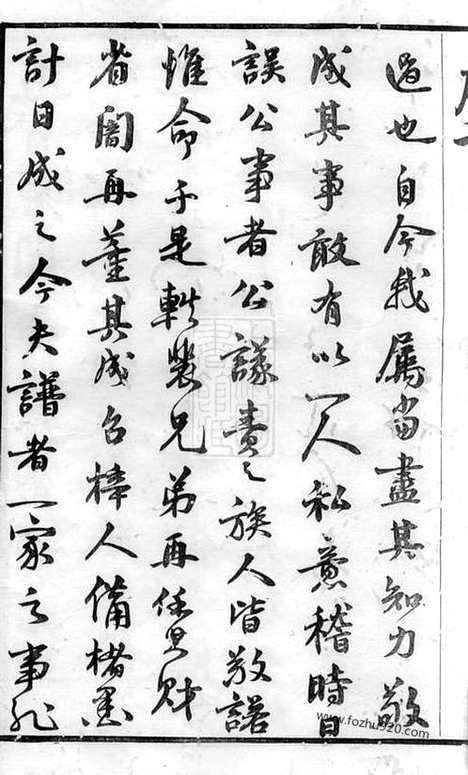 過也自今我屬當盡其知力敬
成其事敢有以一人私意稽時日
誤公事者公議責之族人皆敬諾
惟命于是軼裴兄弟再任其財
省闇再董其成召梓人備楮墨
計日成之今夫譜者一家之事非
www.fozhu920.com